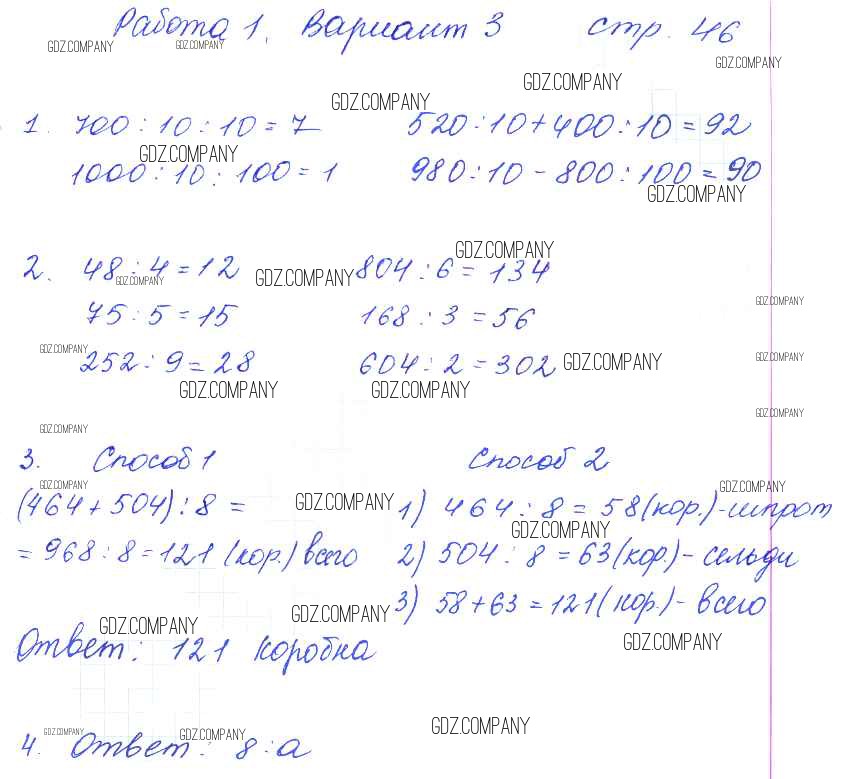 Работа 1. Вариант 3 стр. 46
GDZ.COMPANY GDZ.COMPANY
GDZ.COMPANY
GDZ.COMPANY
GDZ.COMPANY
1. 700 : 10 : 10 = 7 520 : 10 + 400 : 10 = 92
GDZ.COMPANY
1000 : 10 : 100 = 1 980 : 10 - 800 : 100 = 90
GDZ.COMPANY
GDZ.COMPANY
2. 48 : 4 = 12 804 : 6 = 134
GDZ.COMPANY GDZ.COMPANY
GDZ.COMPANY
75 : 5 = 15 168 : 3 = 56
GDZ.COMPANY
252 : 9 = 28 604 : 2 = 302 GDZ.COMPANY GDZ.COMPANY
GDZ.COMPANY GDZ.COMPANY
GDZ.COMPANY
GDZ.COMPANY
3. Способ 1 Способ 2
GDZ.COMPANY GDZ.COMPANY
(464 + 504) : 8 = GDZ.COMPANY 1) 464 : 8 = 58 (кор.) - шпрот
GDZ.COMPANY
= 968 : 8 = 121 (кор.) всего 2) 504 : 8 = 63 (кор.) - сельди
GDZ.COMPANY 3) 58 + 63 = 121 (кор.) - всего
GDZ.COMPANY GDZ.COMPANY
Ответ: 121 коробка
GDZ.COMPANY
GDZ.COMPANY GDZ.COMPANY
4. Ответ: 8 : а